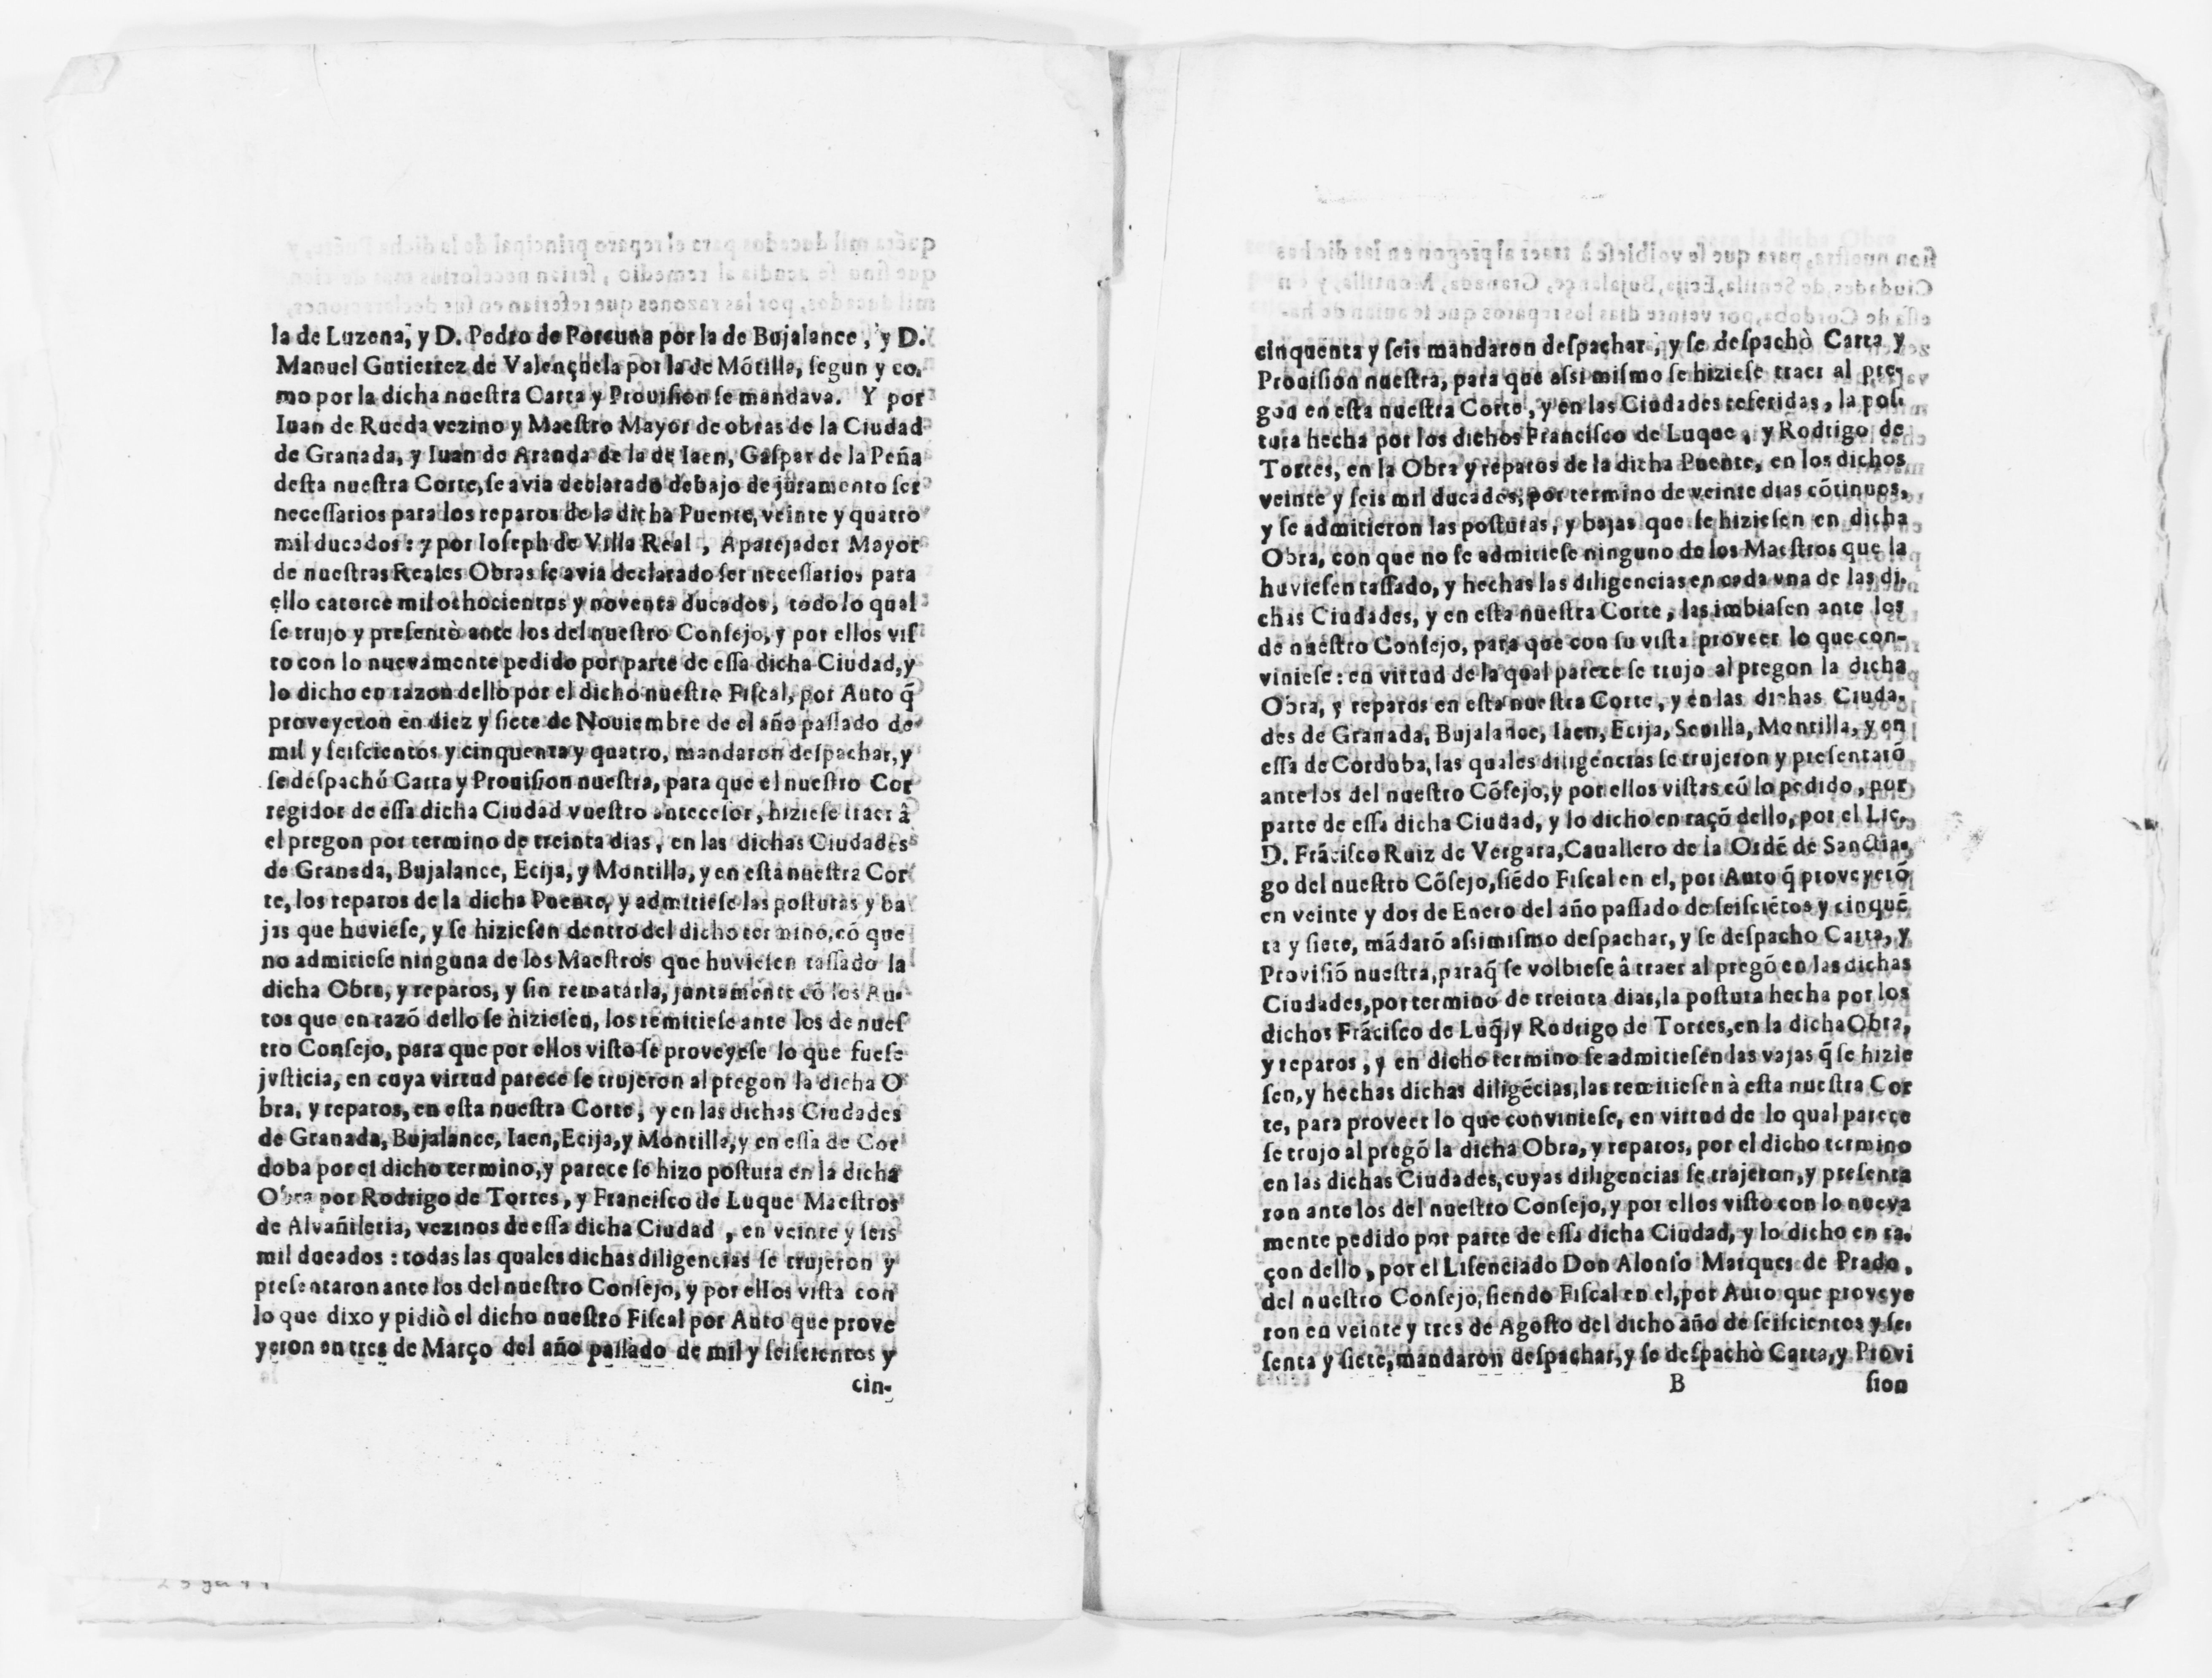 la de Luzena, y D. Pedro de Porcuna por la de Bujalance, y D.
Manuel Gutierrez de Valençuela por la de Mõtilla, ſegun y co-
mo por la dicha nueſtra Carta y Prouiſion ſe mandava. Y por
Iuan de Rueda vezino y Maeſtro Mayor de obras de la Ciudad
de Granada, y Iuan de Aranda de la de Iaen, Gaſpar de la Peña
deſta nueſtra Corte, ſe avia declarado debajo de juramento ſer
neceſſarios para los reparos de la dicha Puente, veinte y quatro
mil ducados: y por Ioſeph de Villa Real, Aparejador Mayor
de nueſtras Reales Obras ſe avia declarado ſer neceſſarios para
ello catorce mil ochocientos y noventa ducados, todo lo qual
ſe trujo y preſentò ante los del nueſtro Conſejo, y por ellos viſ
to con lo nuevamente pedido por parte de eſſa dicha Ciudad, y
lo dicho en razon dello por el dicho nueſtro Fiſcal, por Auto q̃
proveyeron en diez y ſiete de Nouiembre de el año paſſado de
mil y ſeiſcientos y cinquenta y quatro, mandaron deſpachar, y
ſe deſpachó Carta y Prouiſion nueſtra, para que el nueſtro Cor
regidor de eſſa dicha Ciudad vueſtro anteceſor, hizieſe traer â
el pregon por termino de treinta dias, en las dichas Ciudades
de Granada, Bujalance, Ecija, y Montilla, y en eſta nueſtra Cor
te, los reparos de la dicha Puente, y admitieſe las poſturas y ba
jas que huvieſe, y ſe hizieſen dentro del dicho termino, cõ que
no admitieſe ninguna de los Maeſtros que huvieſen taſſado la
dicha Obra, y reparos, y ſin rematarla, juntamente cõ los Au-
tos que en razõ dello ſe hizieſen, los remitieſe ante los de nueſ
tro Conſejo, para que por ellos viſto ſe proveyeſe lo que fueſe
jvſticia, en cuya virtud parece ſe trujeron al pregon la dicha O
bra, y reparos, en eſta nueſtra Corte, y en las dichas Ciudades
de Granada, Bujalance, Iaen, Ecija, y Montilla, y en eſſa de Cor
doba por el dicho termino, y parece ſe hizo poſtura en la dicha
Obra por Rodrigo de Torres, y Franciſco de Luque Maeſtros
de Alvañileria, vezinos de eſſa dicha Ciudad, en veinte y ſeis
mil ducados: todas las quales dichas diligencias ſe trujeron y
preſentaron ante los del nueſtro Conſejo, y por ellos viſta con
lo que dixo y pidiò el dicho nueſtro Fiſcal por Auto que prove
yeron en tres de Março del año paſſado de mil y ſeiſcientos y
cin-
cinquenta y ſeis mandaron deſpachar, y ſe deſpachò Carta y
Prouiſion nueſtra, para que aſſi miſmo ſe hizieſe traer al pre-
gon en eſta nueſtra Corte, y en las Ciudades referidas, la poſ-
tura hecha por los dichos Franciſco de Luque, y Rodrigo de
Torres, en la Obra y reparos de la dicha Puente, en los dichos
veinte y ſeis mil ducados, por termino de veinte dias cõtinuos,
y ſe admitieron las poſturas, y bajas que ſe hizieſen en dicha
Obra, con que no ſe admitieſe ninguno de los Maeſtros que la
huvieſen taſſado, y hechas las diligencias en cada vna de las di-
chas Ciudades, y en eſta nueſtra Corte, las imbiaſen ante los
de nueſtro Conſejo, para que con ſu viſta proveer lo que con-
vinieſe: en virtud de la qual parece ſe trujo al pregon la dicha
Obra, y reparos en eſta nueſtra Corte, y en las dichas Ciuda-
des de Granada, Bujalance, Iaen, Ecija, Seuilla, Montilla, y en
eſſa de Cordoba, las quales diligencias ſe trujeron y preſentarõ
ante los del nueſtro Cõſejo, y por ellos viſtas cõ lo pedido, por
parte de eſſa dicha Ciudad, y lo dicho en raçõ dello, por el Lic.
D. Frãciſco Ruiz de Vergara, Cauallero de la Ordẽ de Sanctia-
go del nueſtro Cõſejo, ſiẽdo Fiſcal en el, por Auto q̃ proveyerõ
en veinte y dos de Enero del año paſſado de ſeiſciẽtos y cinquẽ
ta y ſiete, mãdarõ aſsimiſmo deſpachar, y ſe deſpacho Carta, y
Proviſiõ nueſtra, paraq̃ ſe volbieſe â traer al pregõ en las dichas
Ciudades, por termino de treinta dias, la poſtura hecha por los
dichos Frãciſco de Luq̃, y Rodrigo de Torres, en la dicha Obra,
y reparos, y en dicho termino ſe admitieſen las vajas q̃ ſe hizie
ſen, y hechas dichas diligẽcias, las remitieſen à eſta nueſtra Cor
te, para proveer lo que convinieſe, en virtud de lo qual parece
ſe trujo al pregõ la dicha Obra, y reparos, por el dicho termino
en las dichas Ciudades, cuyas diligencias ſe trajeron, y preſenta
ron ante los del nueſtro Conſejo, y por ellos viſto con lo nueva
mente pedido por parte de eſſa dicha Ciudad, y lo dicho en ra-
çon dello, por el Liſenciado Don Alonſo Marques de Prado,
del nueſtro Conſejo, ſiendo Fiſcal en el, por Auto que proveye
ron en veinte y tres de Agoſto del dicho año de ſeiſcientos y ſe-
ſenta y ſiete, mandaron deſpachar, y ſe deſpachò Carta, y Provi
B ſion